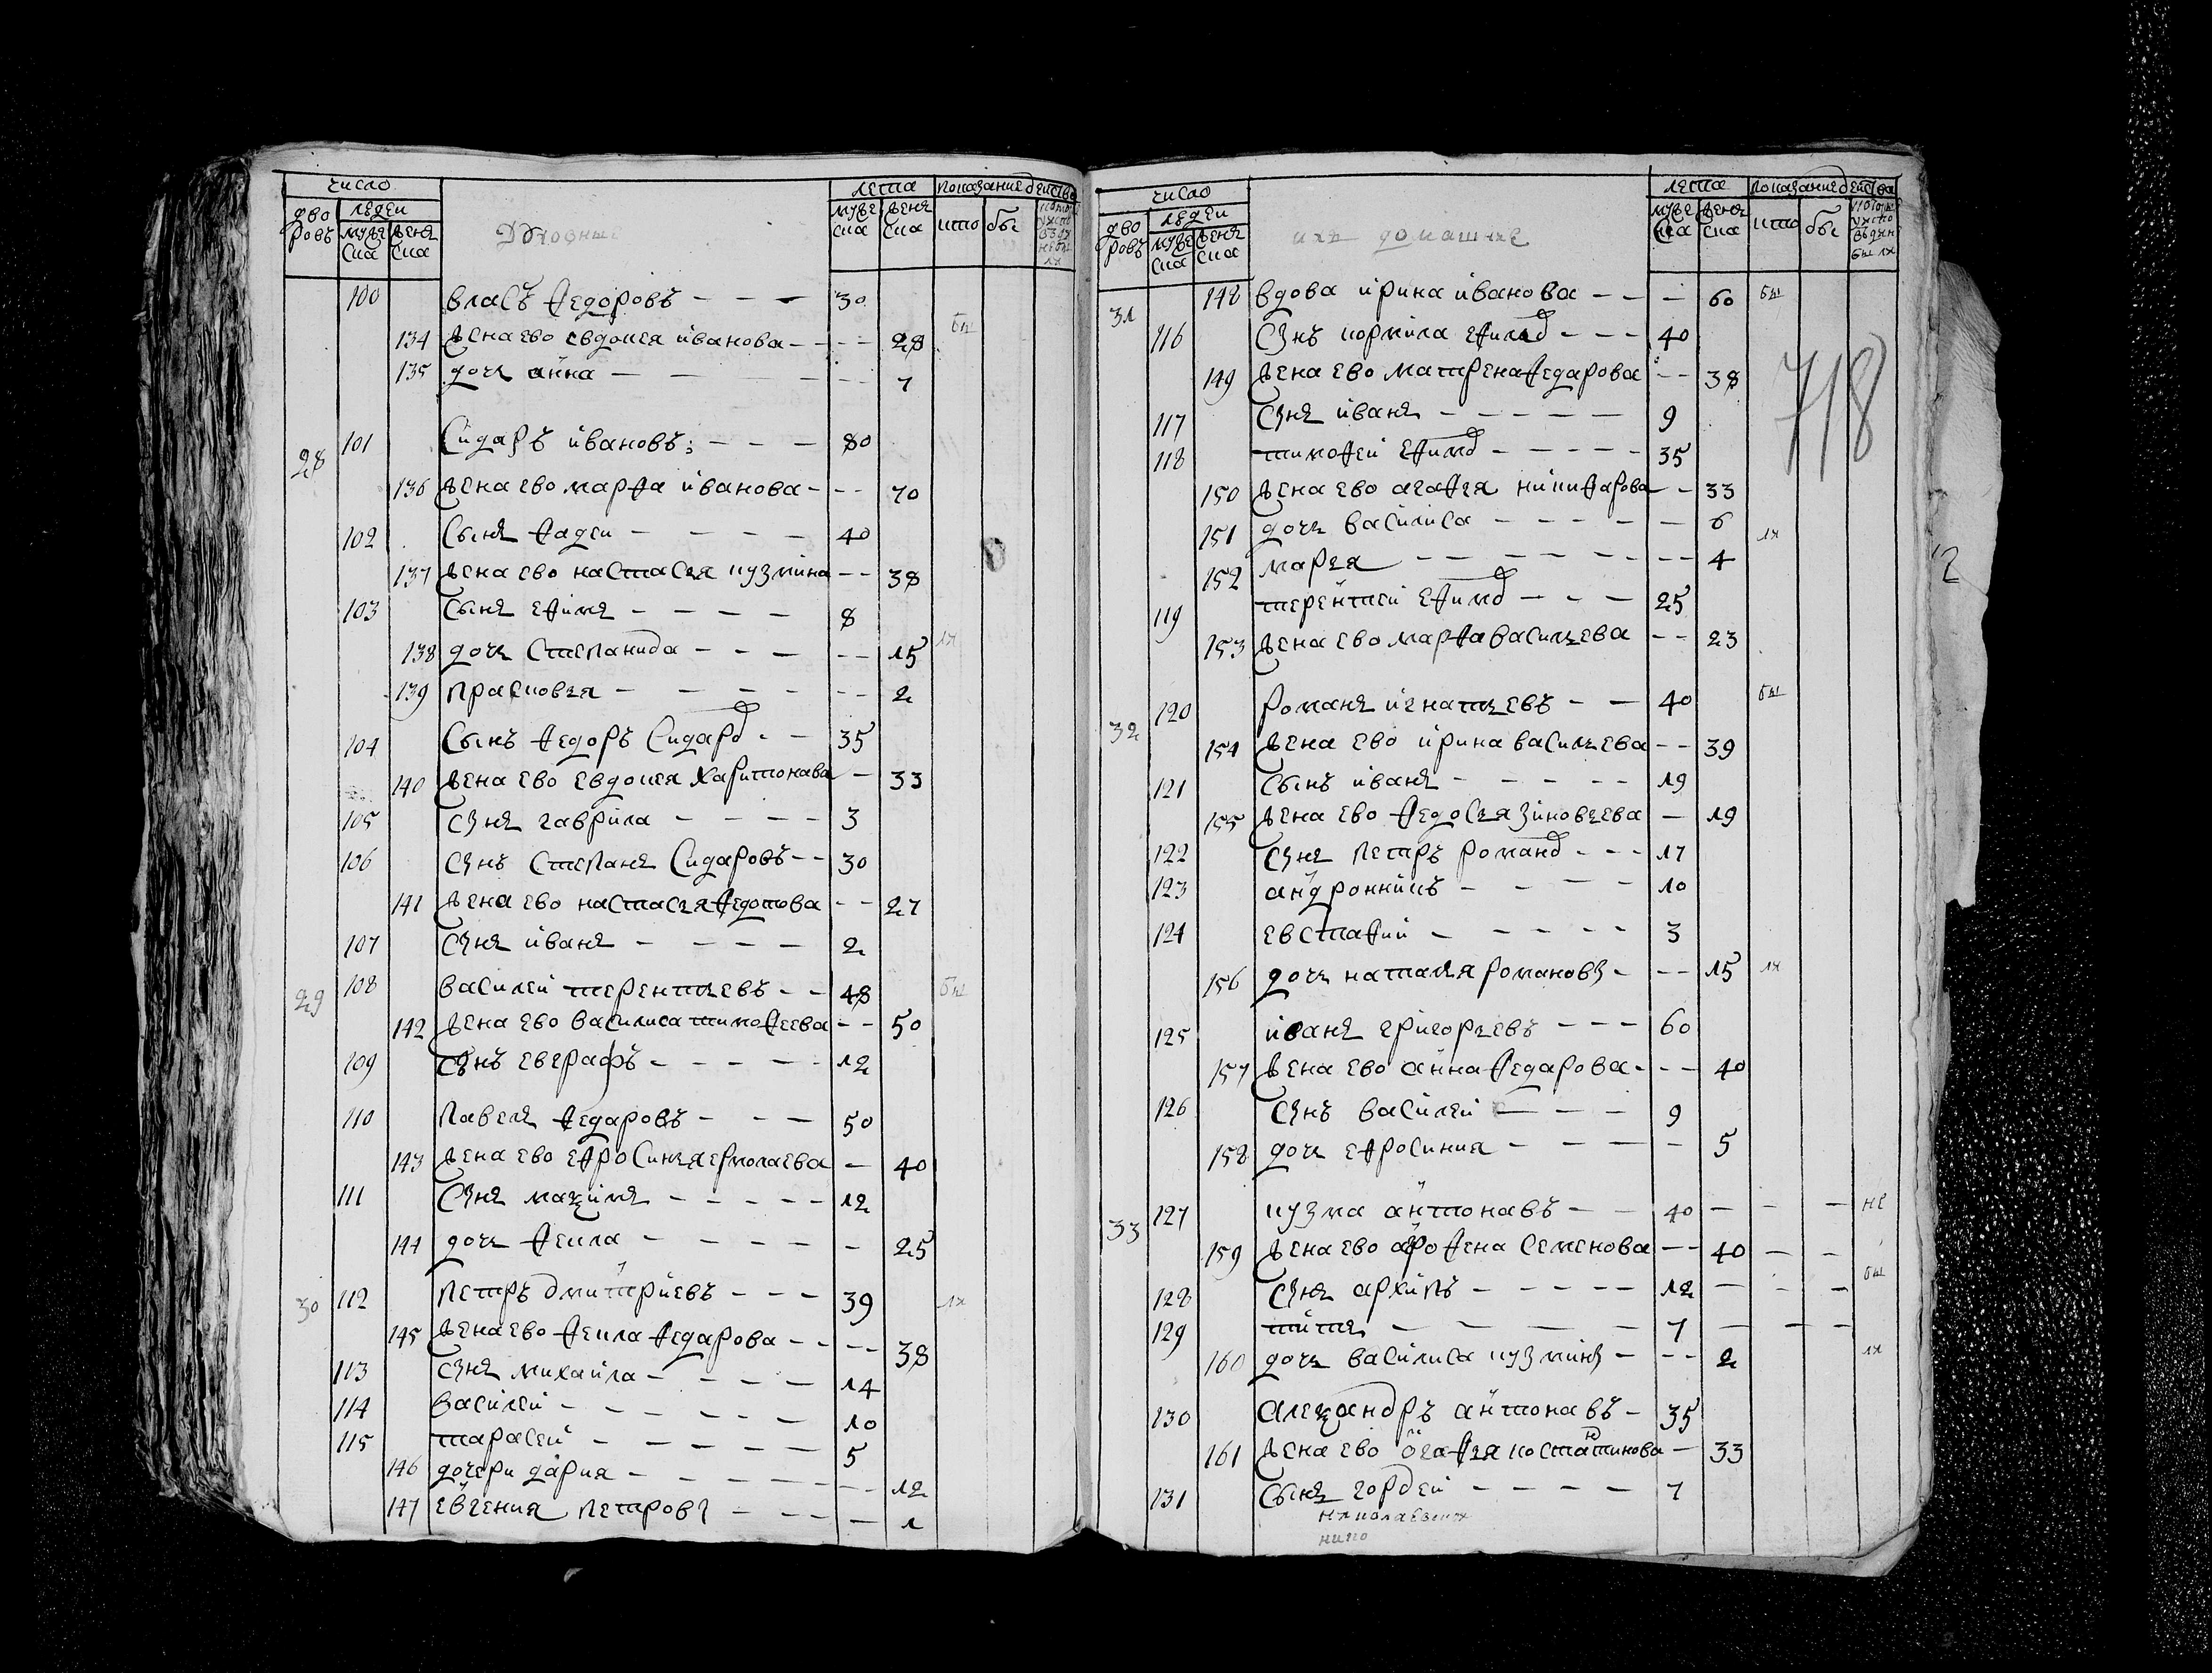 число лета показание действа
дво ровъ людеи муже ска женс ска муже ска женс ска кто бы
Духовные
100 власъ федоровъ 30
134 жена ево евдокея иванова 28 бы
135 дочь анна 7
28 101 Сидаръ ивановъ 80
136 жена ево марфа иванова 70
102 Сынъ фадеи 40
137 жена ево настасья кузмина 38
103 Сынъ ефимъ 8
138 дочь Степанида 15 ли
139 прасковья 2
104 Сынъ федоръ Сидаров 35
140 жена ево евдокея харитонава 33
105 Сынъ гаврила 3
106 Сынъ Степанъ Сидаровъ 30
141 жена ево настасья федотова 27
107 Сынъ иванъ 2
29 108 василеи терентьевъ 48 бы
142 жена ево василиса тимофеева 50
109 Сынъ евграфъ 12
110 Павелъ федаровъ 50
143 жена ево ефросинья ермолаева 40
111 Сынъ маѯимъ 12
144 дочь фекла 25
30 112 Петръ дмитриевъ 39 ли
145 жена ево фекла федарова 38
113 Сынъ михаила 14
114 василеи 10
115 тарасеи 5
146 дочери дария 12
147 евгения петровы 1
число лета показание действа
дво ровъ людеи муже ска женс ска муже ска женс ска кто бы
ихъ домашние
31 148 вдова ирина иванова 60 бы
116 Сынъ кормила ефимов 40
149 жена ево матрена федарова 38
718
117 Сынъ иванъ 9
118 тимофеи ефимов 35
150 жена ево агафея никифарова 33
151 дочь василиса 6 ли
152 марья 4
119 терентеи ефимов 25
153 жена ево марфа васильева 23
32 120 романъ игнатьевъ 40 бы
154 жена ево ирина васильева 39
121 Сынъ иванъ 19
155 жена ево федосья зиновьева 19
122 Сынъ петръ романов 17
123 андронникъ 10
124 евстафии 3
156 дочь наталья романовы 15 ли
125 иванъ григорьевъ 60
157 жена ево анна федарова 40
126 Сынъ василеи 9
158 дочь ефросиния 5
33 127 кузма антонавъ 40 не
159 жена ево афрофена Семенова 40
128 Сынъ архипъ 12 бы
129 титъ 7
160 дочь василиса кузмины 2 ли
130 Алеѯандръ антонавъ 35
161 жена ево огафья костантинова 33
131 Сынъ гордеи 7